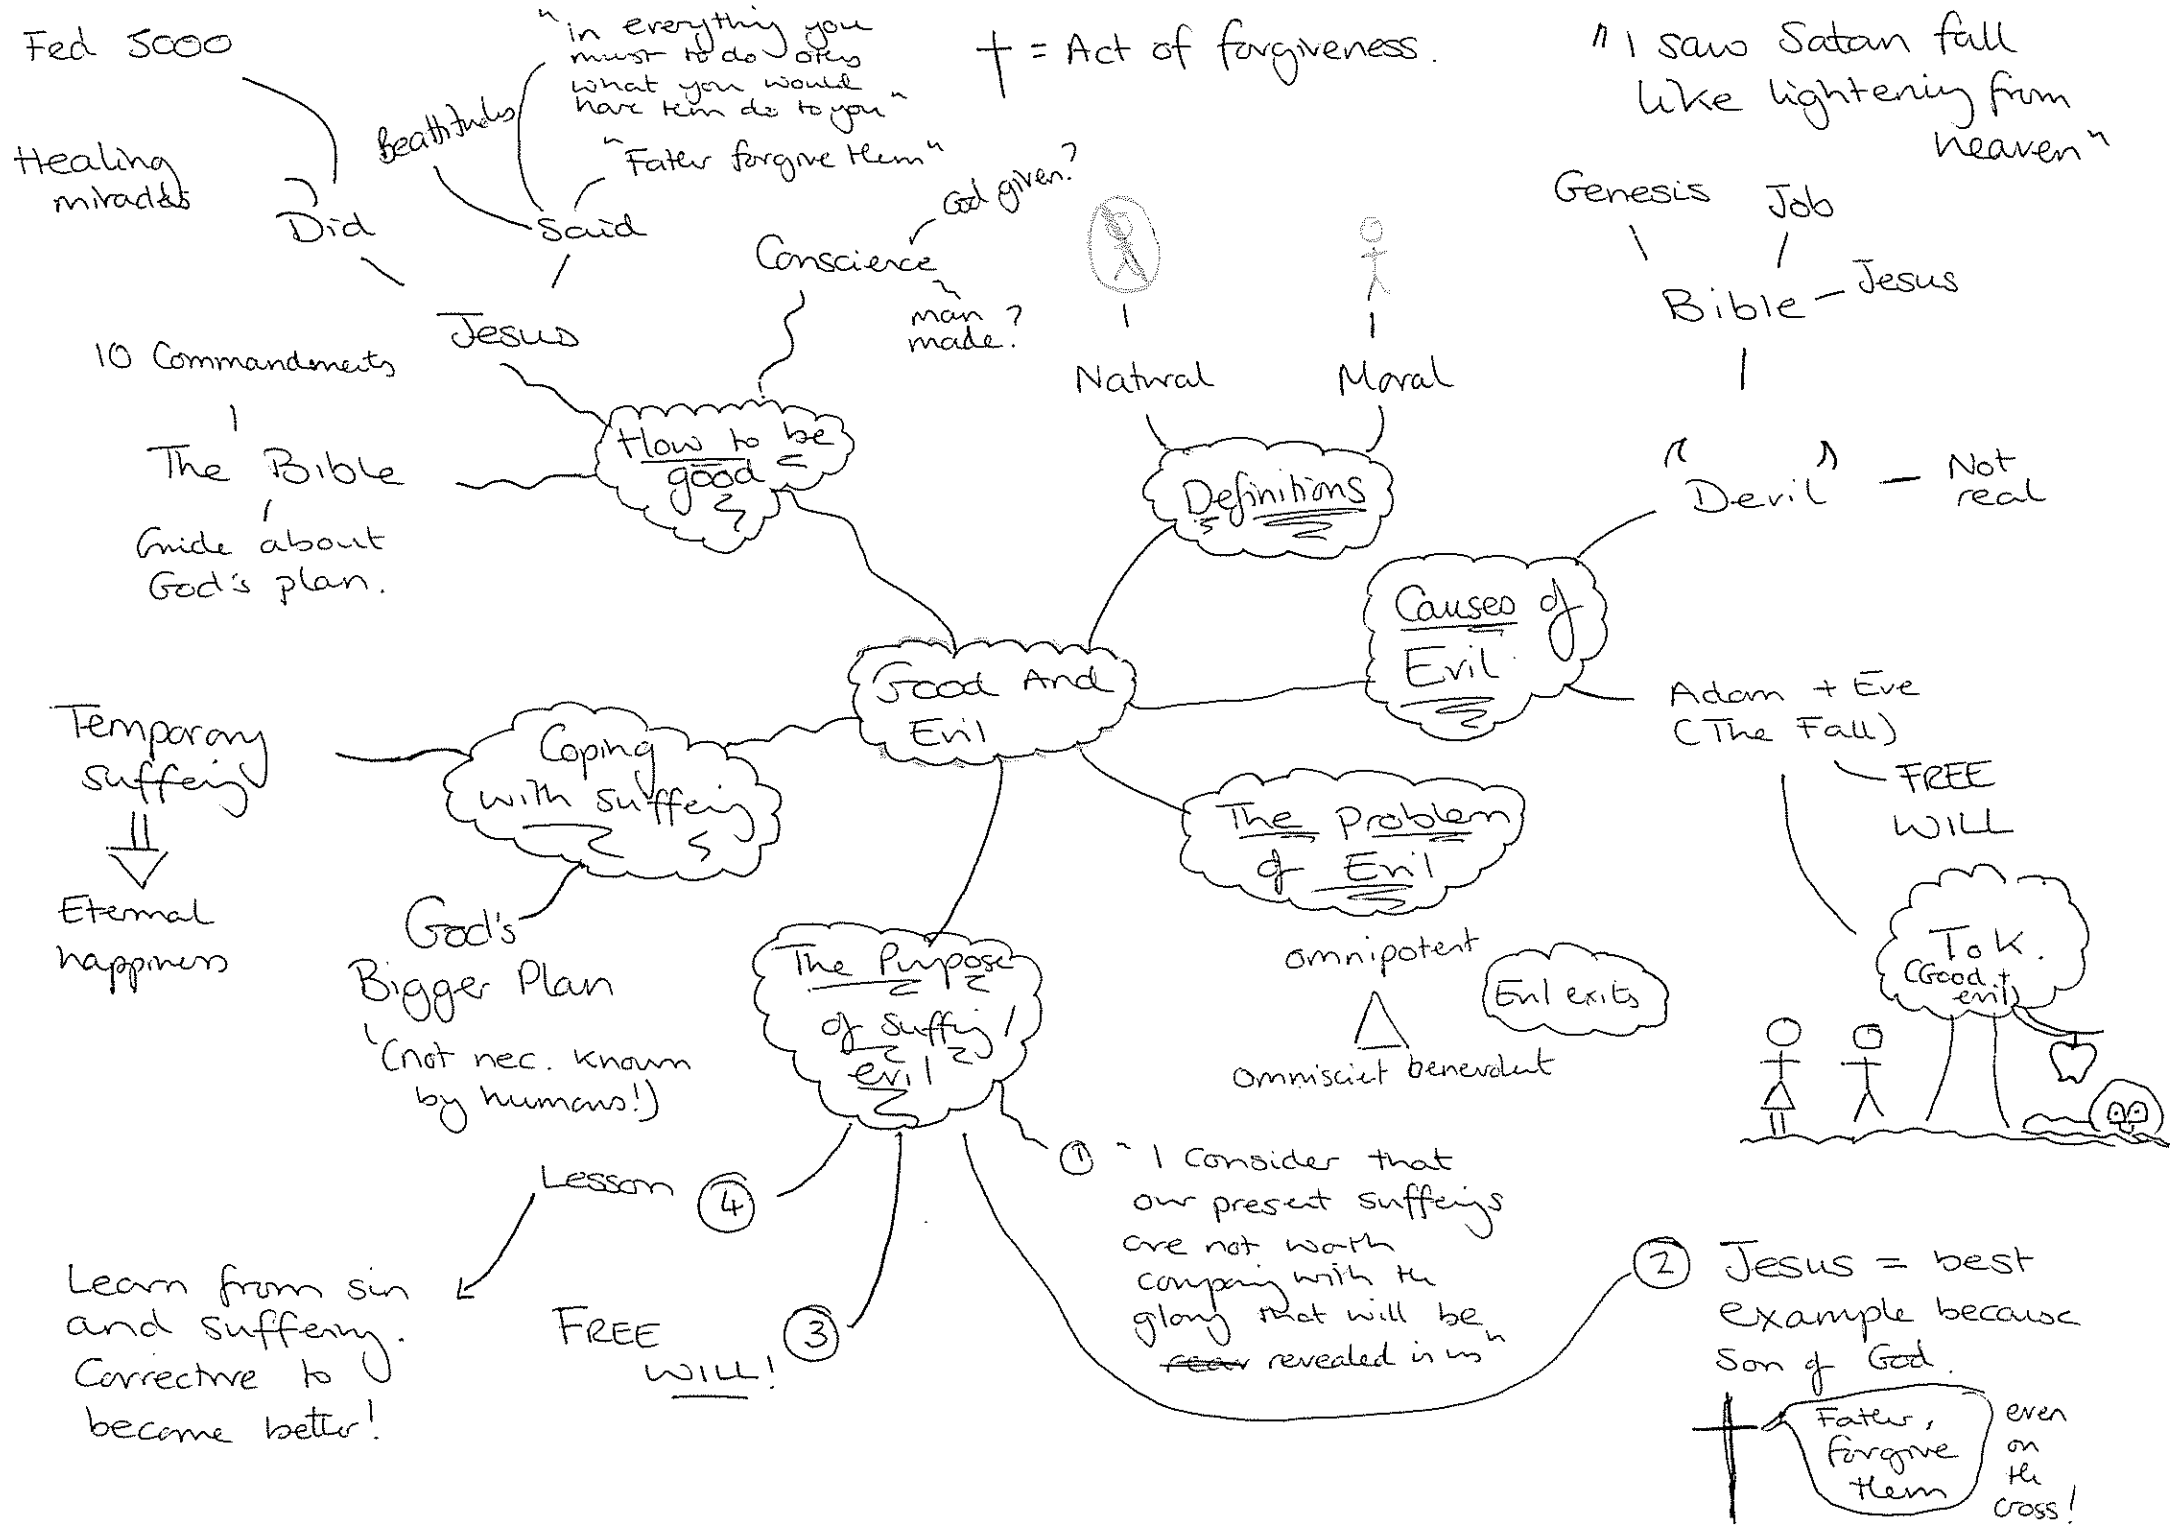 Fed 5000
Healing
miracles
Did
Beattitudes
"in everything you
must to do others
what you would
have them do to you"
"Father forgive them"
Said
Jesus
† = Act of forgiveness.
Conscience
God given?
man
made?
10 Commandments
The Bible
Guide about
God's plan.
How to be
good
Natural
Moral
Definitions
"I saw Satan fall
like lightening from
heaven"
Genesis
Job
Bible - Jesus
"Devil" - Not
real
Causes of
Evil
Adam + Eve
(The Fall)
FREE
WILL
ToK.
(Good +
evil)
Good And
Evil
Coping
with suffering
Temporary
suffering
Eternal
happiness
God's
Bigger Plan
(not nec. known
by humans!)
The Problem
of Evil
omnipotent
omniscient benevolent
Evil exits
The Purpose
of suffing /
evil
① "I consider that
our present sufferings
are not worth
comparing with the
glory that will be
revealed in us"
② Jesus = best
example because
Son of God.
Father,
forgive
them
even
on
the
cross!
③ FREE
WILL!
④ Lesson
Learn from sin
and suffering.
Corrective to
become better!